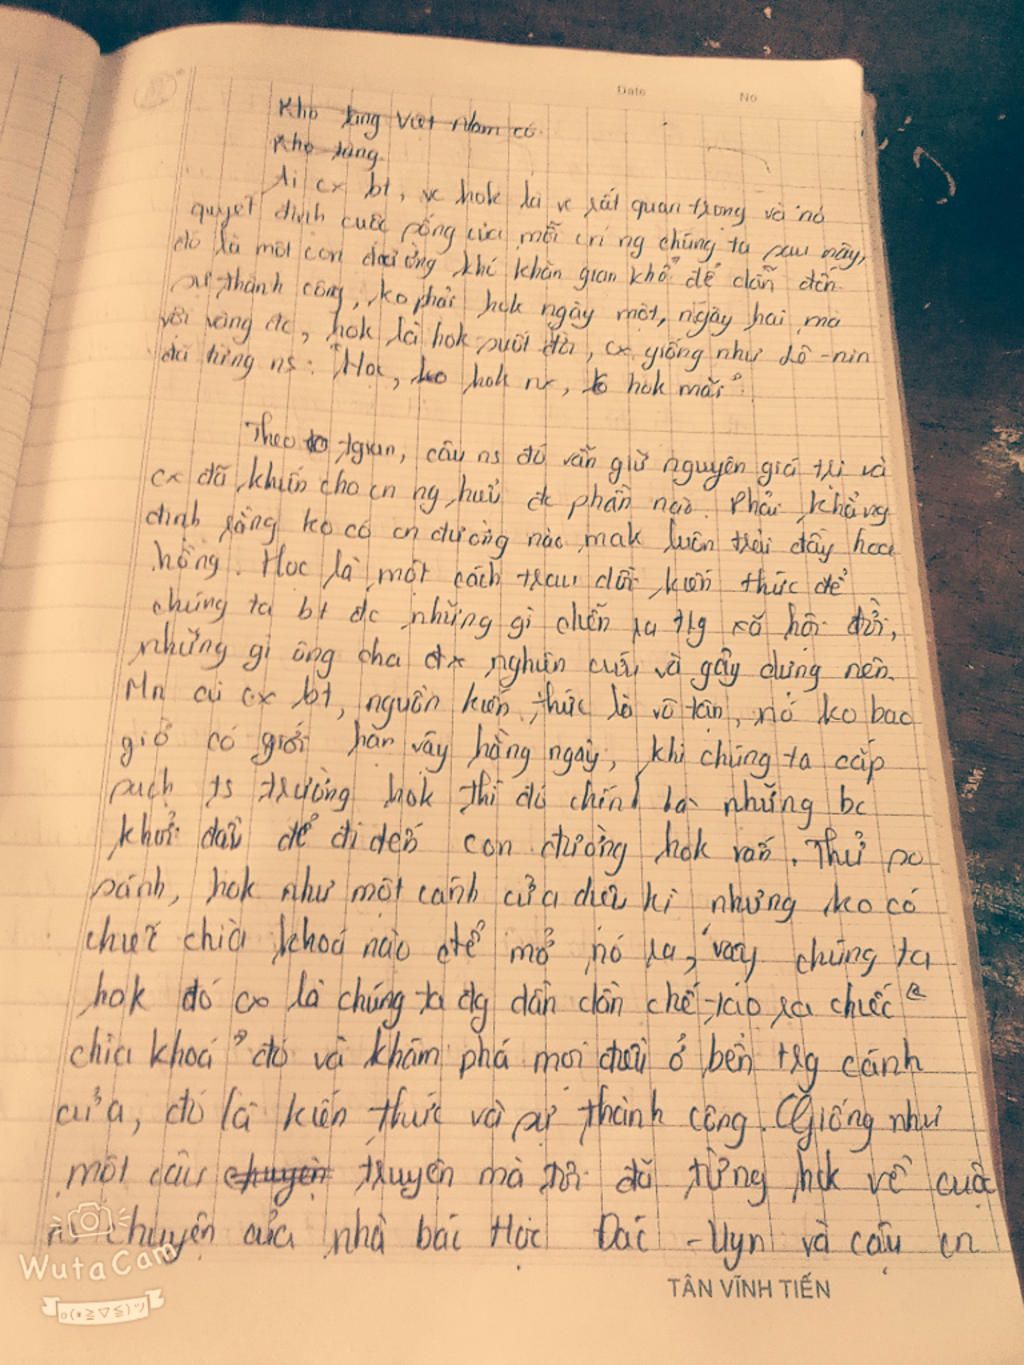 Date No
Kho tàng Việt Nam có
Kho tàng
Ai cx bt, vc hok là vc rất quan trọng và nó
quyết định cuộc sống của mỗi cn ng chúng ta sau này,
đó là một con đường khó khăn gian khổ để dẫn đến
sự thành công, ko phải hok ngày một, ngày hai mà
vội vàng đc, hok là hok suốt đời, cx giống như Lê-nin
đã từng ns: "Học, hok nx, hok mãi"
Theo tgian, câu ns đó vẫn giữ nguyên giá trị và
cx đã khiến cho cn ng hiểu đc phần nào. Phải khẳng
định rằng ko có cn đường nào mak luôn trải đầy hoa
hồng. Học là một cách trau dồi kiến thức để
chúng ta bt đc những gì diễn ra trg xã hội đời,
những gì ông cha đx nghiên cứu và gây dựng nên.
Mn ai cx bt, nguồn kiến thức là vô tận, nó ko bao
giờ có giới hạn vậy hằng ngày, khi chúng ta cắp
sách ts trường hok thì đó chính là những bc
khởi đầu để đi đến con đường hok vấn. Thử so
sánh, hok như một cánh cửa diệu kì nhưng ko có
chiếc chìa khoá nào để mở nó ra, vậy chúng ta
hok đó cx là chúng ta đg dần dần chế tạo ra chiếc "
chìa khoá" đó và khám phá mọi điều ở bên trg cánh
cửa, đó là kiến thức và sự thành công. Giống như
một câu truyện mà tôi đã từng hok về cuộc
chuyện của nhà bác Học Đác-Uyn và cậu cn
WutaCam
TÂN VĨNH TIẾN